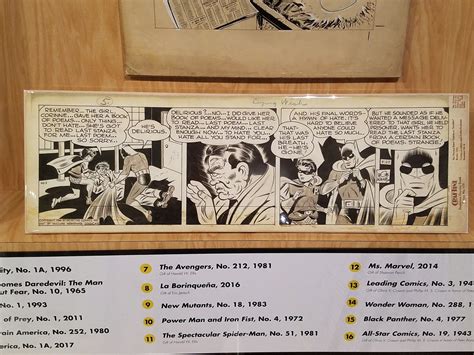 REMEMBER... THE GIRL,
CORINNE... GAVE HER A BOOK
OF POEMS... ONLY THING...
DON'T HATE... SHE'S GOT
TO READ LAST STANZA
FOR ME...
SO SORRY...
HE'S
DELIRIOUS.
DELIRIOUS?... NO... I DO GIVE HER
BOOK OF POEMS... WOULD LIKE HER
TO READ... LAST POEM...
LAST STANZA...
AND MY MIND... CLEAR
ENOUGH NOW... TO HATE
YOU... ALL OF YOU...
THAT
WAS HIS
LAST
BREATH.
HE'S...
FINISHED.
AND HIS FINAL WORDS--
WORDS OF HATE. IT'S
HARD TO BELIEVE
ANYONE COULD HATE
SO MUCH...
BUT HE SOUNDED AS IF HE
WANTED A MESSAGE DELIV-
ERED TO THAT GIRL HE
IMPRISONED, WANTS HER TO
READ THE LAST STANZA
FROM A CERTAIN BOOK
OF POEMS. STRANGE!
ity, No. 1A, 1996
omes Daredevil: The Man
ut Fear, No. 10, 1965
No. 1, 1993
of Prey, No. 1, 2011
ain America, No. 252, 1980
America, No. 1A, 2017
7 The Avengers, No. 212, 1981
Gift of Harold W. Ells
8 La Borinqueña, 2016
9 New Mutants, No. 18, 1983
10 Power Man and Iron Fist, No. 4, 1972
11 The Spectacular Spider-Man, No. 51, 1981
Gift of Harold W. Ells
12 Ms. Marvel, 2014
13 Leading Comics, No. 3, 194
14 Wonder Woman, No. 288,
15 Black Panther, No. 4, 1977
16 All-Star Comics, No. 19, 194